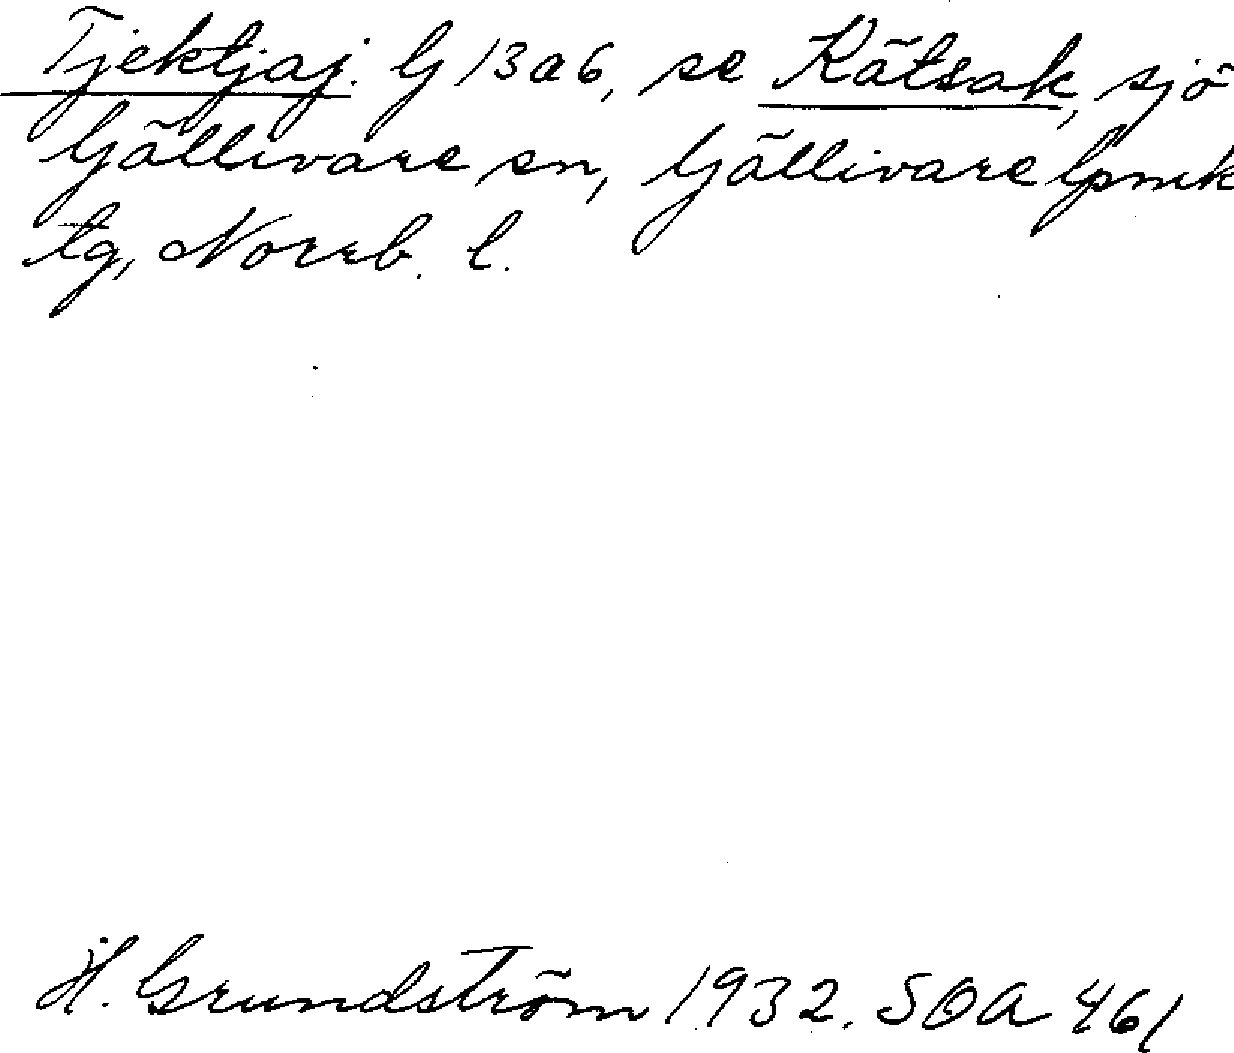 Tjektjaj. Gj 13 a 6, se Kätsak, sjö
Gjällivare sn, Gjällivare lpmk
tg, Norrb. l.
H. Grundström 1932. SOA 461